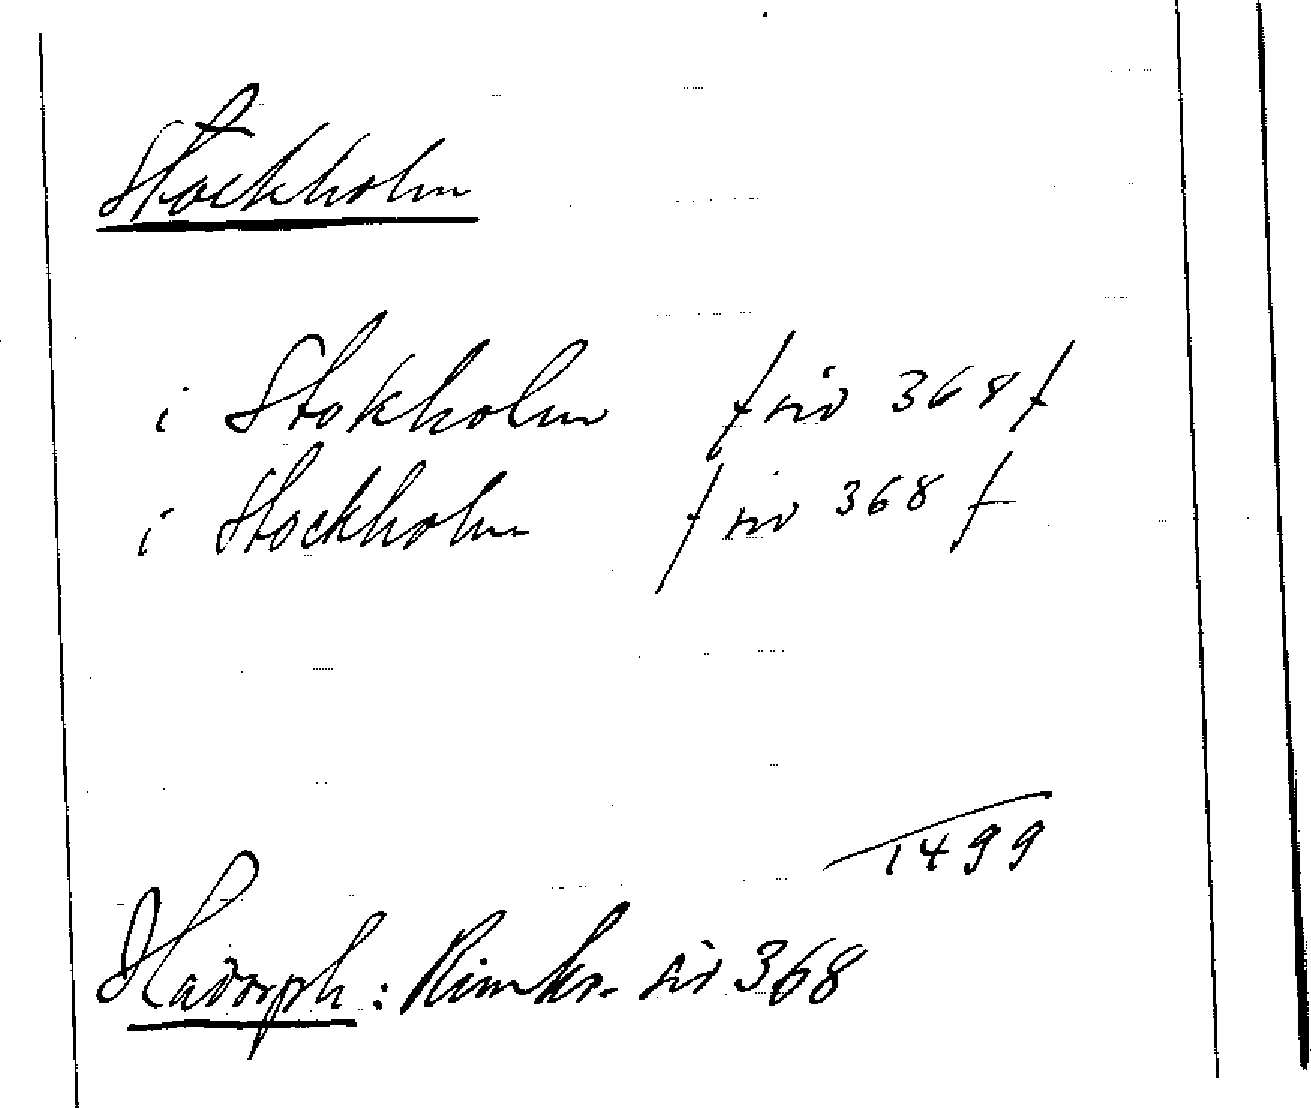 Stockholm
i Stokholm / sid 368 /
i Stockholm / sid 368 /
1499
Hadorph: Rimkr. sid 368